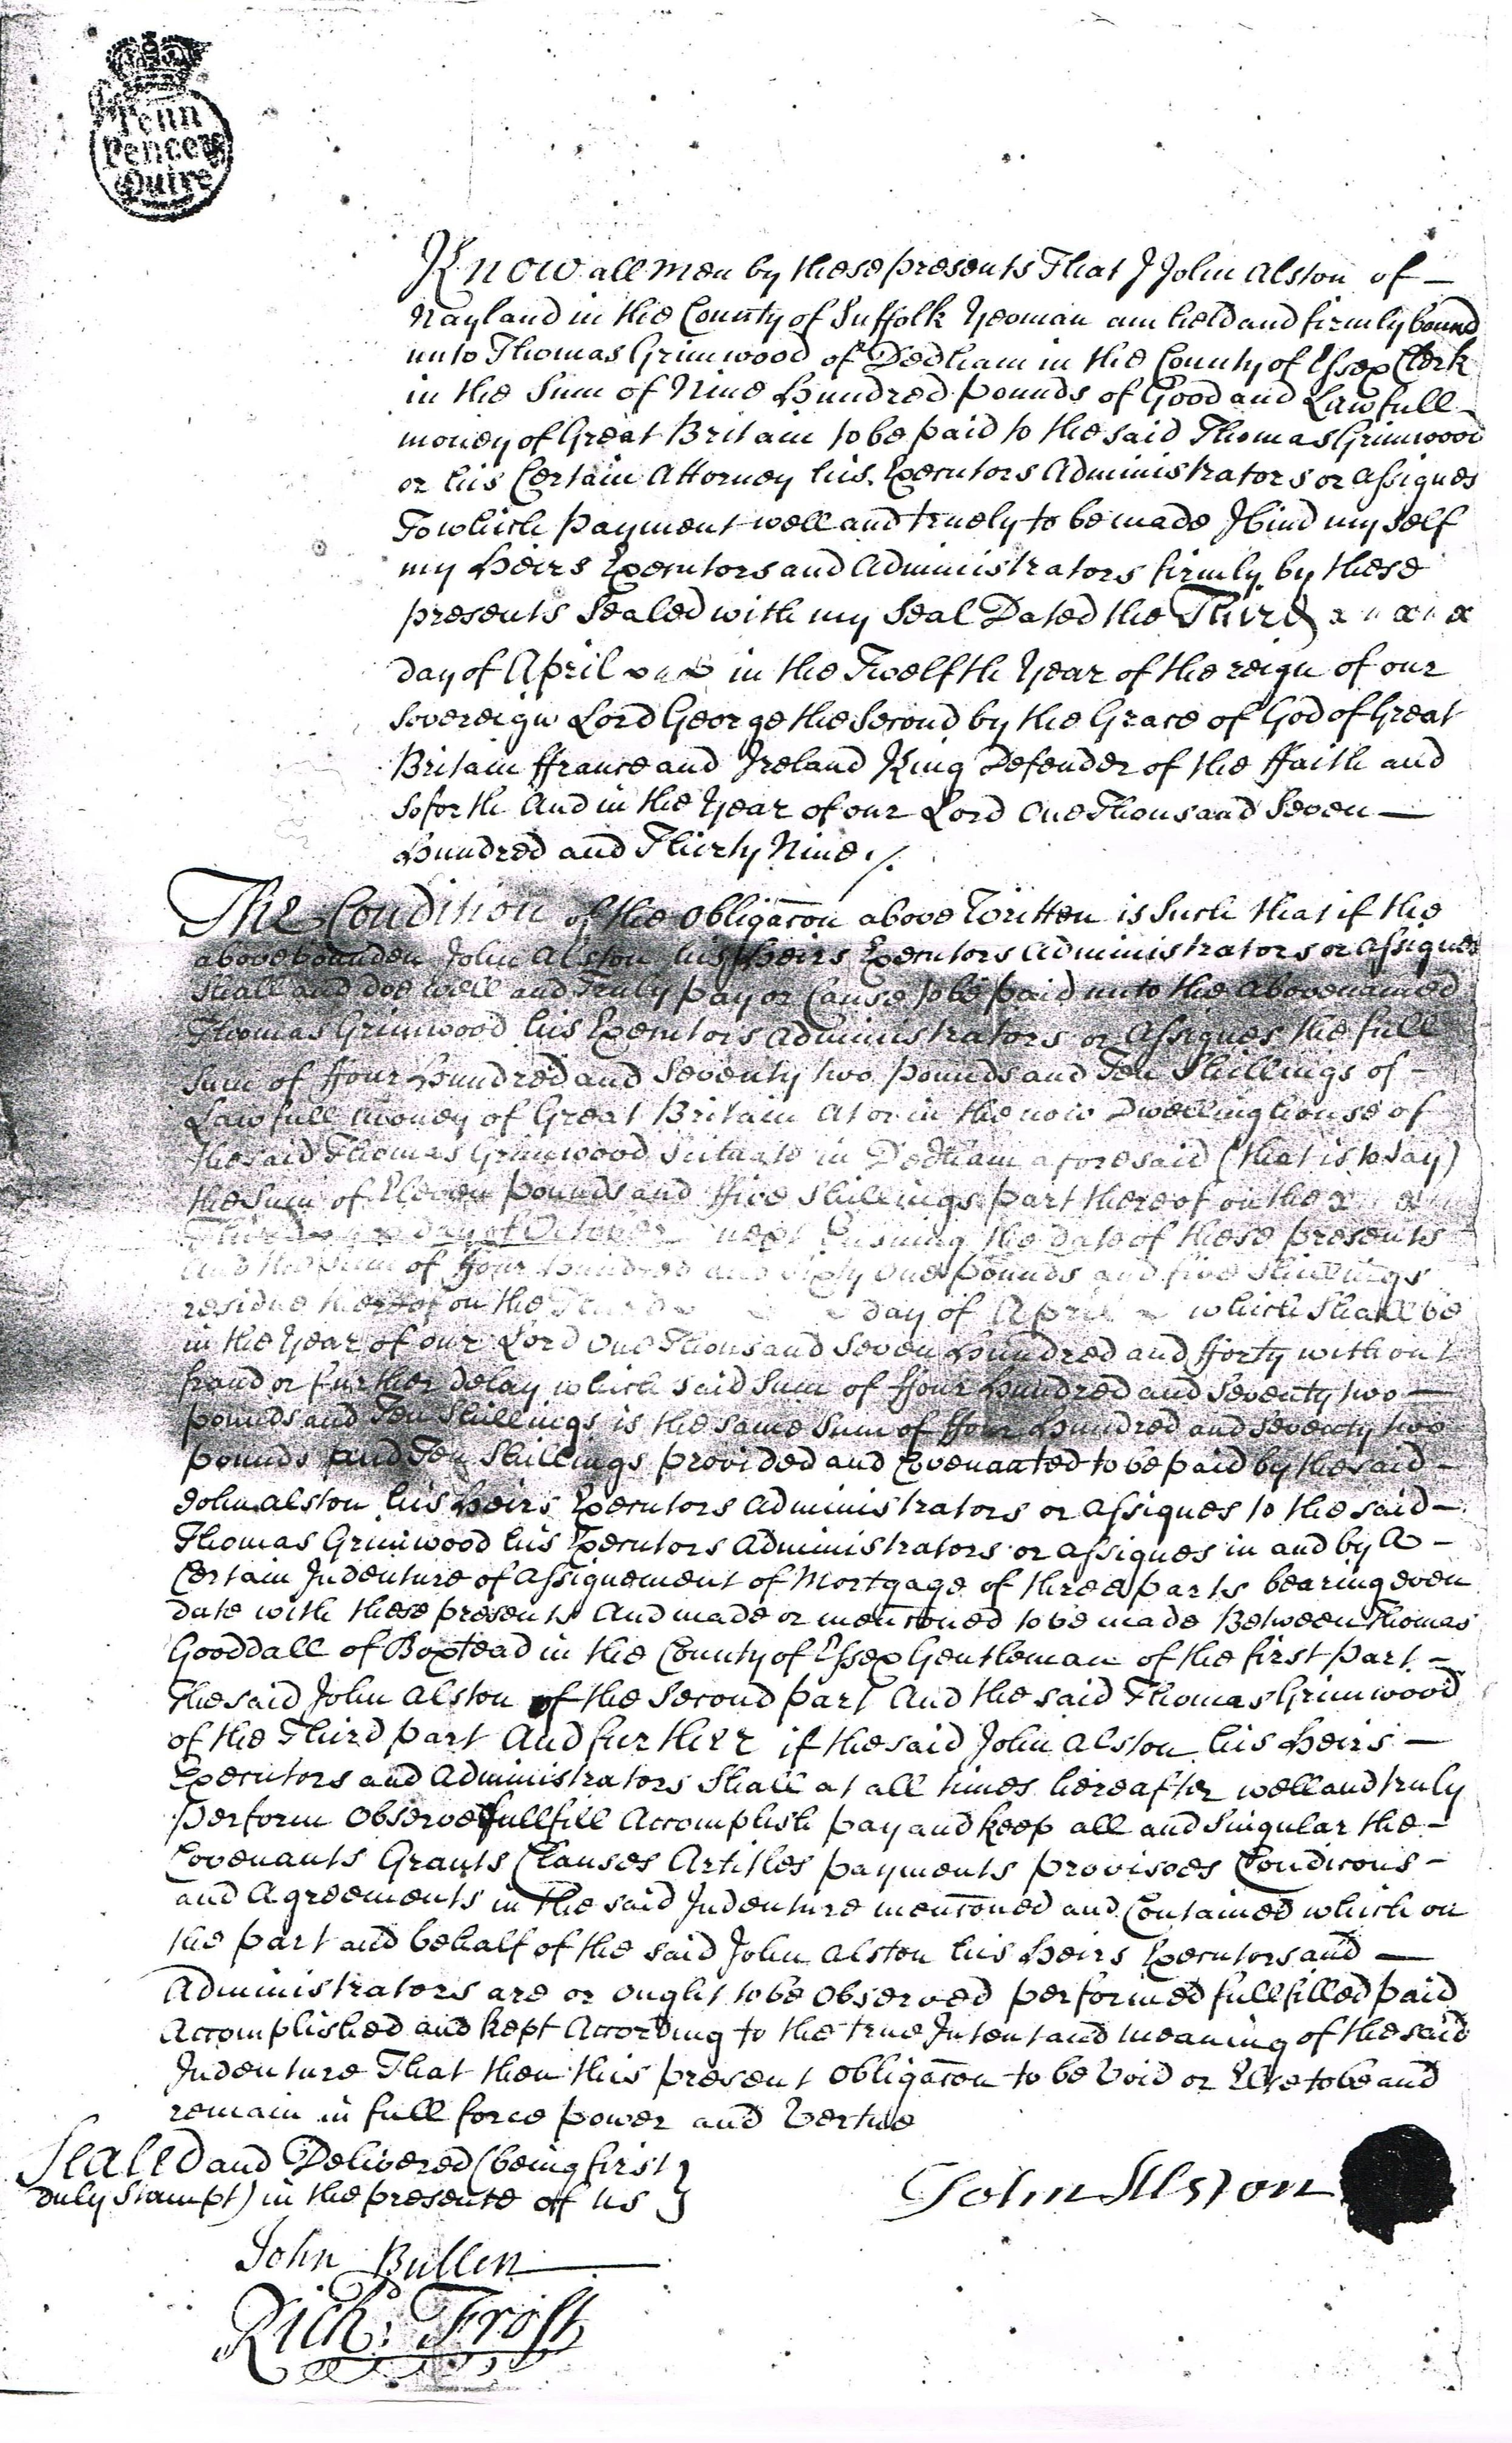 Penn
Pence p
Quire
Know all men by these presents That I John Alston of –
Nayland in the County of Suffolk Yeoman am held and firmly bound
unto Thomas Grimwood of Dedham in the County of Essex Clerk
in the Sum of Nine Hundred pounds of Good and Lawfull –
money of Great Britain to be paid to the said Thomas Grimwood
or his Certain Attorney his Executors Administrators or Assignes
To which payment well and truely to be made I bind my self
my Heirs Executors and Administrators firmly by these
presents Sealed with my Seal Dated the Third
day of April in the Twelfth Year of the reign of our
Sovereign Lord George the Second by the Grace of God of Great
Britain ffrance and Ireland King Defender of the ffaith and
soforth And in the Year of our Lord One Thousand Seven —
Hundred and Thirty Nine ./.
The Condition of the Obligacon above Written is Such that if the
abovebounden John Alston his Heirs Executors Administrators or Assignes
Shall and doe well and Truly pay or Cause to be paid unto the Abovenamed
Thomas Grimwood his Executors Administrators or Assignes the full
Sum of ffour Hundred and Seventy two pounds and Ten Shillings of –
Lawfull money of Great Britain At or in the now Dwellinghouse of
the said Thomas Grimwood Scituate in Dedham aforesaid (that is to say)
the Sum of Eleven pounds and ffive Shillings part thereof on the
Third day of October next Ensuing the date of these presents
And the Sum of ffour Hundred and Sixty One pounds and five Shillings
residue thereof on the Third day of April which Shall be
in the Year of our Lord One Thousand Seven Hundred and fforty without
fraud or further delay which said Sum of ffour Hundred and Seventy two —
pounds and Ten Shillings is the same Sum of ffour Hundred and Seventy two
pounds and Ten Shillings provided and Covenanted to be paid by the said –
John Alston his Heirs Executors Administrators or Assignes to the said –
Thomas Grimwood his Executors Administrators or Assignes in and by A –
Certain Indenture of Assignement of Mortgage of three parts bearing even
date with these presents And made or mencioned to be made Between Thomas
Gooddall of Boxtead in the County of Essex Gentleman of the first part –
the said John Alston of the Second part And the said Thomas Grimwood
of the Third part And further if the said John Alston his Heirs —
Executors and Administrators Shall at all times hereafter well and truly
perform Observe fullfill Accomplish pay and keep all and Singular the –
Covenants Grants Clauses Articles payments provisoes Condicons –
and Agreements in the said Indenture mencioned and Contained which on
the part and behalf of the said John Alston his Heirs Executors and —
Administrators are or ought to be Observed performed fullfilled paid
Accomplished and kept According to the true Intent and meaning of the said
Indenture That then this present Obligacon to be Void or Else to be and
remain in full force power and Vertue
Sealed and Delivered (being first
duly Stampt) in the presence of us }
John Alston
John Bullen
Richd: Frost